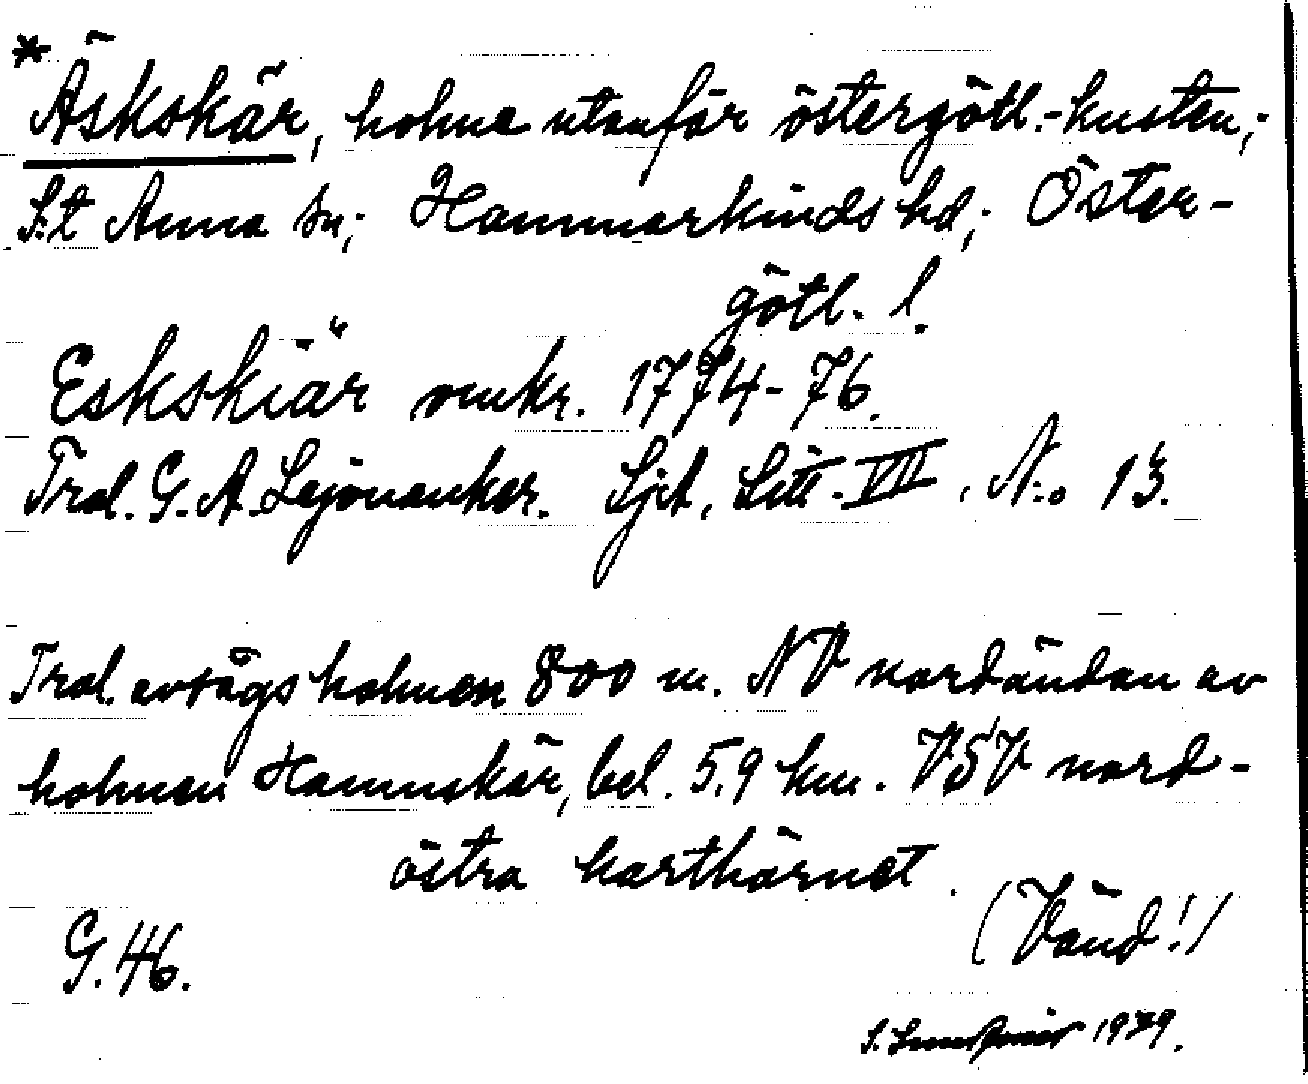 * Äskskär, holme utanför östergötl.-kusten,-
S:t Anna sn; Hammarkinds hd; Öster-
götl. l.
Eskskiär omkr. 1774-76.
Trol. G. A. Lejonanker. Sjk. Litt. VII. N:o 13.
Trol. avsågs holmen 800 m. NV nordändan av
holmen Hamnskär, bel. 5,9 km. VSV nord-
östra karthörnet.
(Vänd!)
G. 46.
S. 1979.